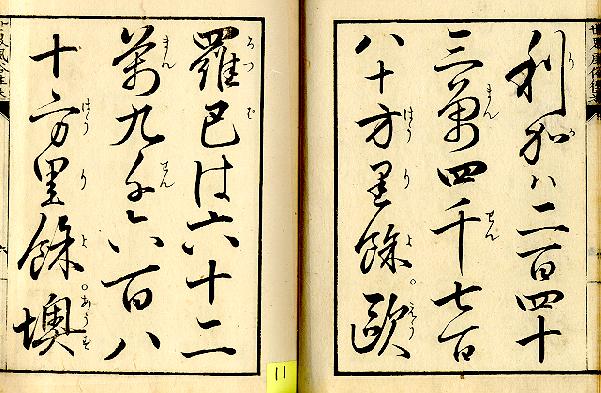 利加ハ二百四十
三萬四千七百
八十方里餘。歐
羅巴は六十二
萬九千六百八
十方里餘。墺
11